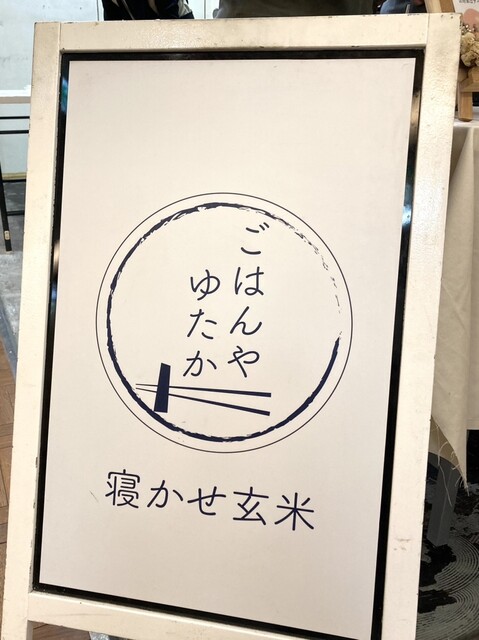 ごはんや
ゆたか
寝かせ玄米